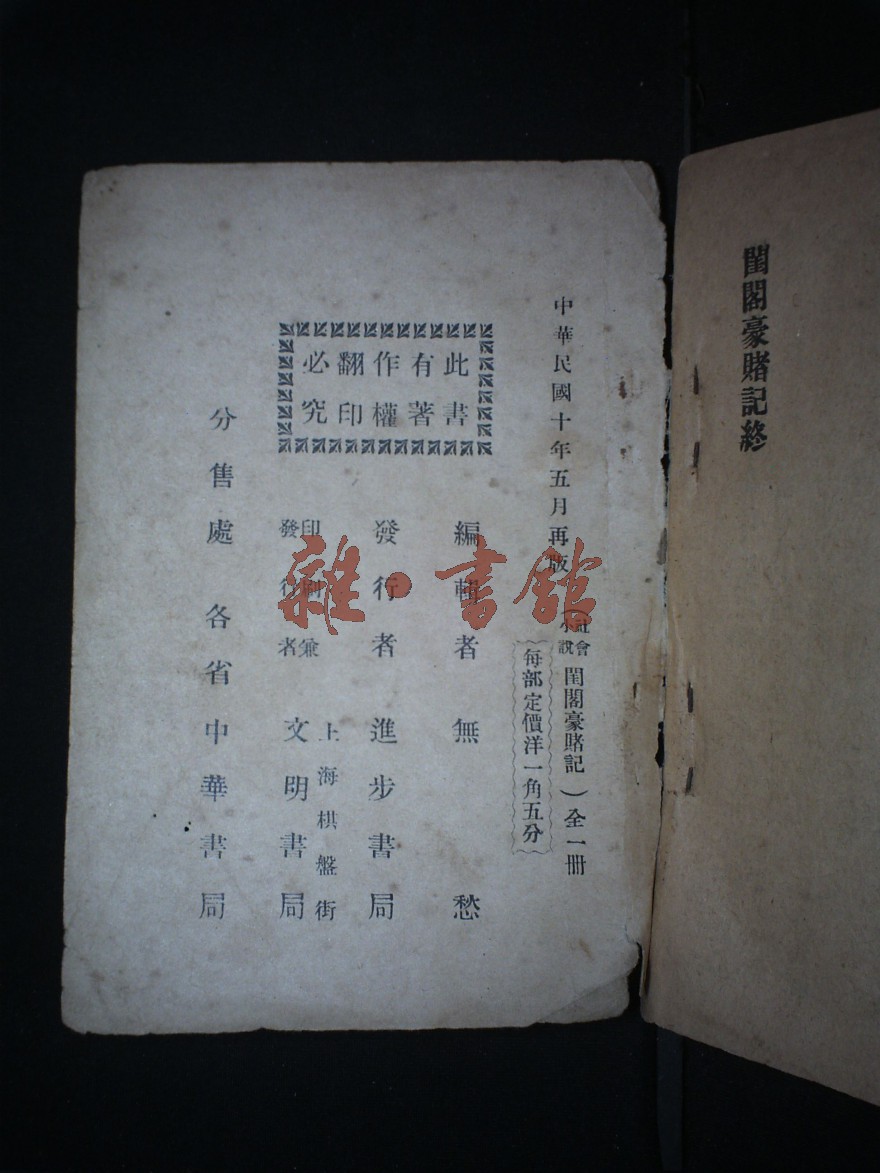 閨閣豪賭記終
中華民國十年五月再版
（社會小說 閨閣豪賭記）全一冊
每部定價洋一角五分
此書
有著
作權
翻印
必究
編輯者 無愁
發行者 進步書局
印刷兼發行者 上海棋盤街 文明書局
分售處 各省中華書局
雜·書館